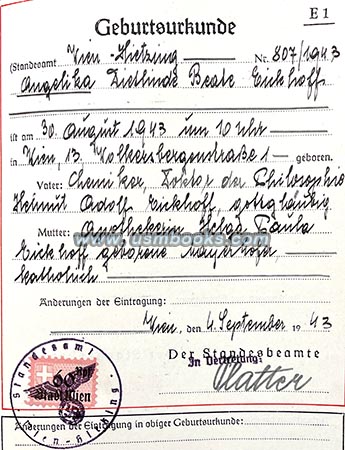 E 1
Geburtsurkunde
(Standesamt Wien-Hietzing Nr. 807/1943
Angelika Dietlinde Beate Eickhoff
ist am 30. August 1943 um 10 Uhr
in Wien, 13. Wolkersbergenstraße 1 geboren.
Vater: Chemiker, Doktor der Philosophie
Helmut Adolf Eickhoff, gottgläubig
Mutter: Apothekerin Helga Paula
www.usmbooks.com
Eickhoff geborene Mayerhofer
katholisch
Änderungen der Eintragung:
Wien, den 4. September 1943
Der Standesbeamte
In Vertretung:
60 Rpf
Stadt Wien
Standesamt
Wien-Hietzing
Änderungen der Eintragung in obiger Geburtsurkunde: